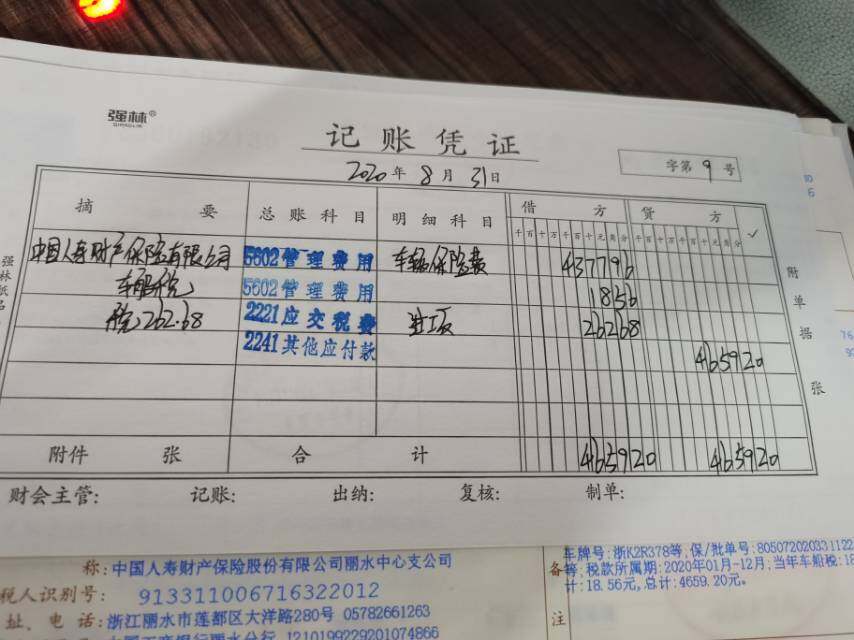 强林®
QIANGLIN
记账凭证
2020年8月31日
字第9号
摘要 总账科目 明细科目 借方 贷方 ✓
千百十万千百十元角分 千百十万千百十元角分
中国人寿财产保险有限公司 5602管理费用 车辆保险费 437796
车船税 5602管理费用 1856
税262.68 2221应交税费 进项 26268
2241其他应付款 465920
附件 张 合计 465920 465920
附单据 张
强林纸品
财会主管: 记账: 出纳: 复核: 制单:
称:中国人寿财产保险股份有限公司丽水中心支公司
税人识别号: 913311006716322012
址、电话:浙江丽水市莲都区大洋路280号 05782661263
1210199229201074866
备注
车牌号:浙K2R378等,保/批单号:805072020331122
等;税款所属期:2020年01月-12月;当年车船税:18
计:18.56元,总计:4659.20元。